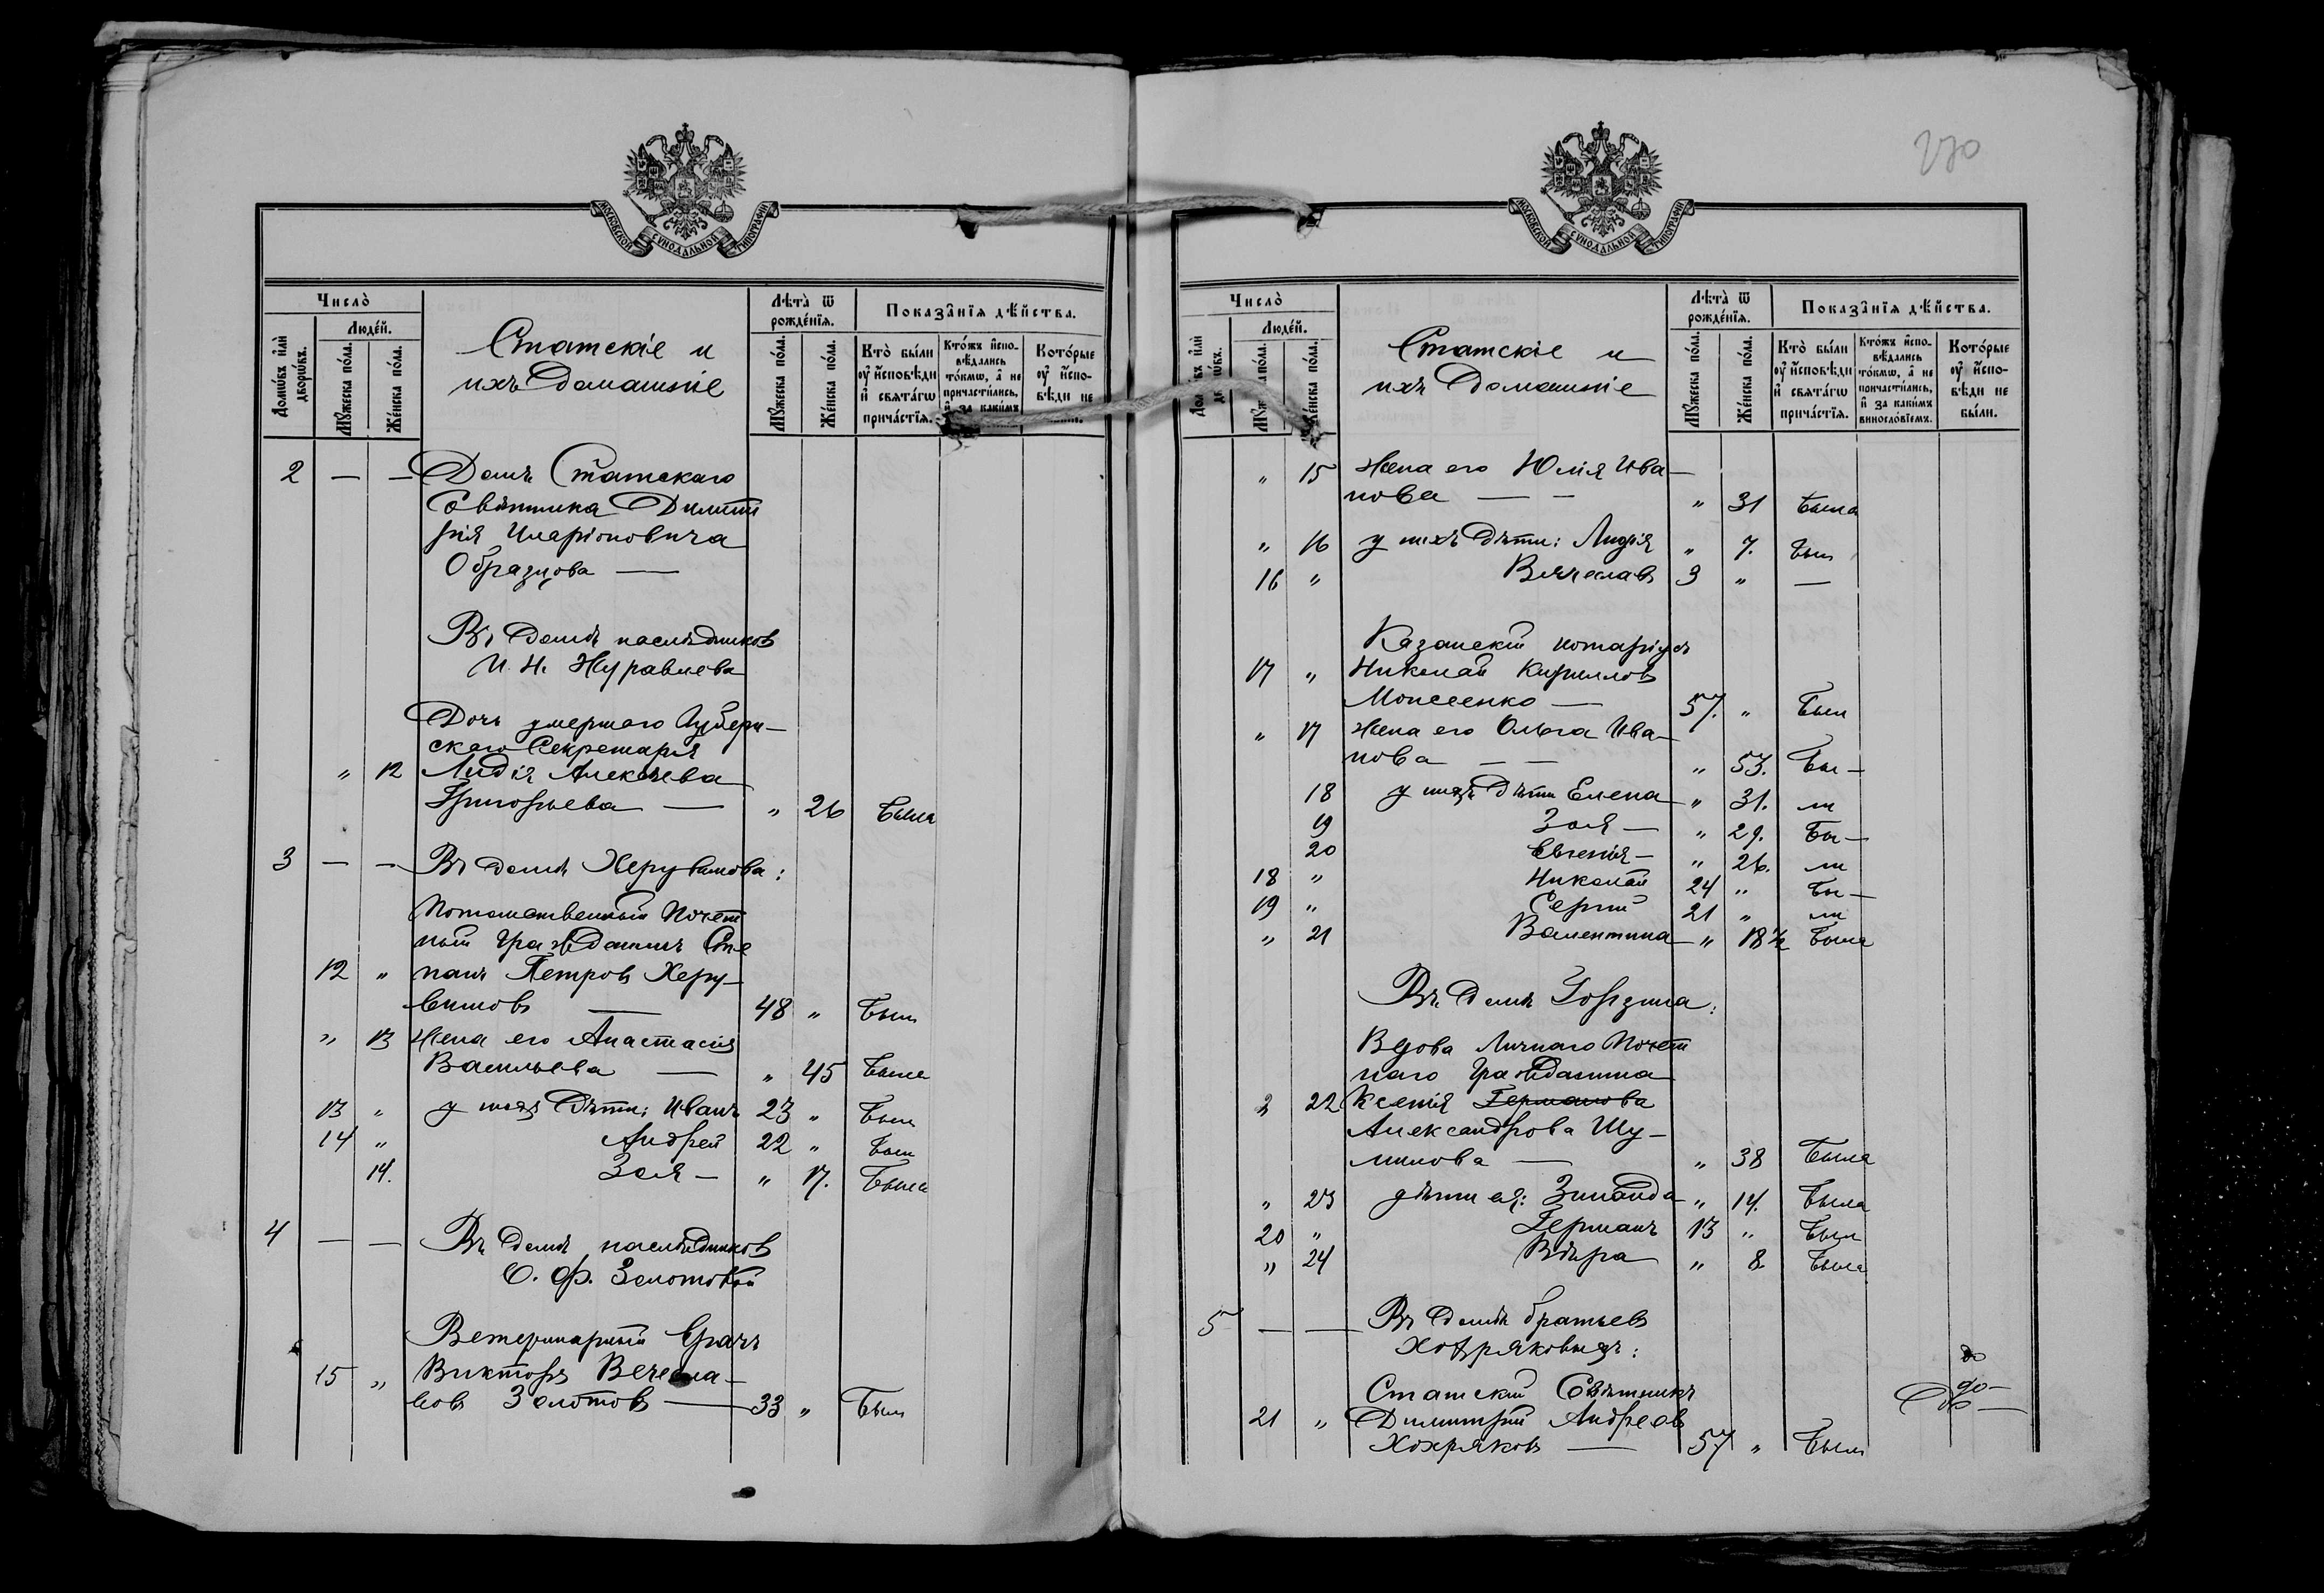 МОСКОВСКОЙ СѴНОДАЛЬНОЙ ТИПОГРАФІИ
Число̀
Домѡ́въ и҆лѝ дворѡ́въ.
Люде́й.
Мꙋ́жеска по́ла.
Же́нска по́ла.
Статскіе и
ихъ домашніе
Лѣ́та ѿ рожде́нїѧ.
Мꙋ́жеска по́ла.
Же́нска по́ла.
Показа̑нїѧ дѣ́йства.
Кто̀ бы́ли ᲂу҆ и҆сповѣ́ди и҆ свѧта́гѡ прича́стїѧ.
Кто́жъ и҆спо-
вѣ́дались
то́кмѡ, а҆ не
причасти́лись,
и҆ за каки́мъ
Кото́рые
ᲂу҆ и҆спо-
вѣ́ди не
2 — — Домъ Статскаго
Совѣтника Димит
рія Иларіоновича
Образцова —
Въ домѣ наслѣдников
И. Н. Журавлева
Дочь умершаго Губерн-
скаго Секретаря
" 12 Лидія Алексѣева
Григорьева — " 26 была
3 — — Въ домѣ Херувимова:
Потомственный Почет
ный Гражданинъ Сте
12 " панъ Петровъ Херу-
вимовъ — 48 " был
" 13 Жена его Анастасія
Васильева — " 45 была
13 " у нихъ дѣти: Иванъ 23 " был
14 " Андрей 22 " был
14. Зоя — " 17. была
4 — — Въ домѣ наслѣдников
О. Ф. Золотовой
Ветеринарный врачъ
15 " Викторъ Вечесла-
вовъ Золотовъ — 33 " был
270
МОСКОВСКОЙ СѴНОДАЛЬНОЙ ТИПОГРАФІИ
Число̀
Люде́й.
Же́нска по́ла.
Статскіе и
ихъ домашніе
Лѣ́та ѿ рожде́нїѧ.
Мꙋ́жеска по́ла.
Же́нска по́ла.
Показа̑нїѧ дѣ́йства.
Кто̀ бы́ли ᲂу҆ и҆сповѣ́ди и҆ свѧта́гѡ прича́стїѧ.
Кто́жъ и҆спо-
вѣ́дались
то́кмѡ, а҆ не
причасти́лись,
и҆ за каки́мъ
виносло́вїемъ.
Кото́рые
ᲂу҆ и҆спо-
вѣ́ди не
бы́ли.
" 15 Жена его Юлія Ива-
нова — — " 31 была
" 16 у нихъ дѣти: Лидія " 7. был
16 " Вячеславъ 3 " —
Казанскій нотаріусъ
17 " Николай Кирилловъ
Моисеенко — 57. " был
" 17 Жена его Ольга Ива-
нова — — " 53. бы-
18 у нихъ дѣти Елена " 31. ли
19 Зоя — " 29. бы-
20 Евгенія — " 26. ли
18 " Николай 24 " бы-
19 " Сергій 21 " ли
" 21 Валентина — " 18½ была
Въ домѣ Горзина:
Вдова Личнаго Почет
наго Гражданина
" 22 Ксенія Германова
Александрова Шу-
милова — " 38 была
" 23 дѣти ея: Зинаида — " 14. была
20 " Германъ 13 " был
" 24 Вѣра " 8. была
5 — — Въ домѣ братьевъ
Хохряковыхъ:
Статскій Совѣтникъ
21 " Димитрій Андреевъ
Хохряковъ — 57 " был